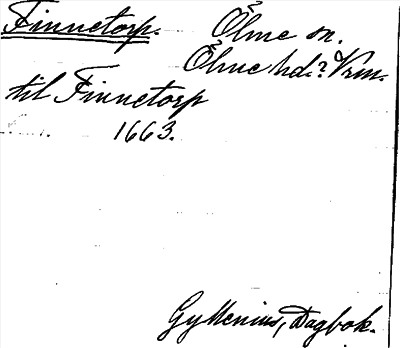 Finnetorp. Ölme sn.
Ölme hd.? Vrm.
till Finnetorp
1663.
Gyllenius, Dagbok.